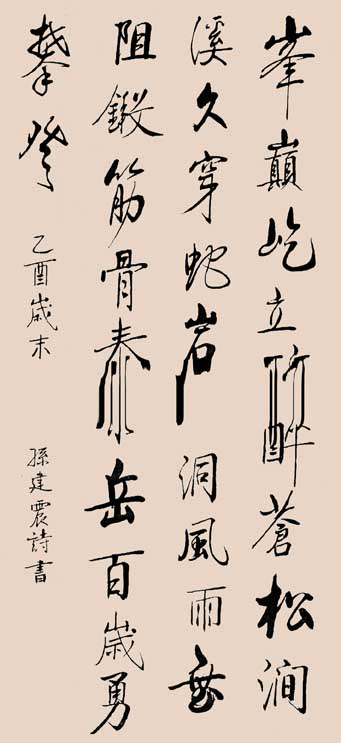 峯巔屹立醉蒼松澗
溪久穿蛇岩洞風雨無
阻鍛筋骨泰岳百歲勇
攀登 乙酉歲末 孫建震詩書